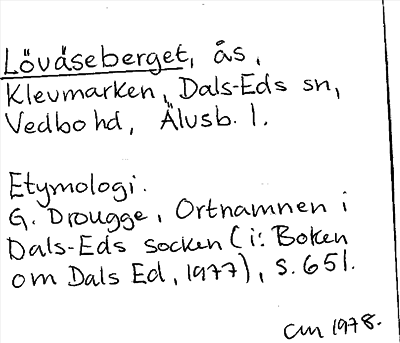 Lövåseberget, ås,
Klevmarken, Dals-Eds sn,
Vedbo hd, Älvsb. l.
Etymologi.
G. Drougge, Ortnamnen i
Dals-Eds socken (i: Boken
om Dals Ed, 1977), s. 651.
CM 1978.